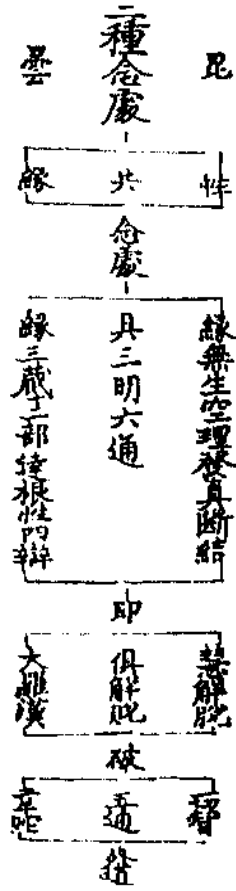 毘
三種念處
曇
性
共
緣
念處
緣無生空理發真斷結
具三明六通
緣三藏十二部達根性辯
即
慧解脫
俱解脫
大羅漢
破
邪智
通
韋陀